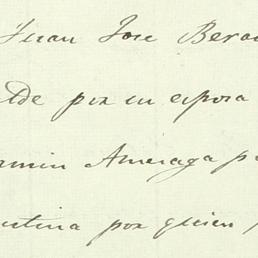 Juan Jose Bera
lde por su esposa
rmin Ameraga p
ustina por quien